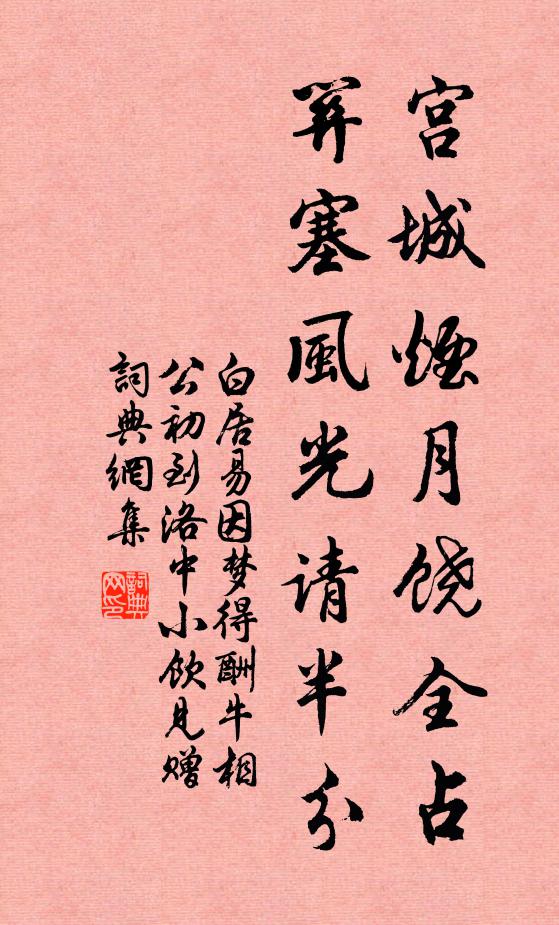 宫城煙月饶全占
关塞風光请半分
白居易因梦得酬牛相
公初到洛中小饮见赠
詞典網集
詞典
网印